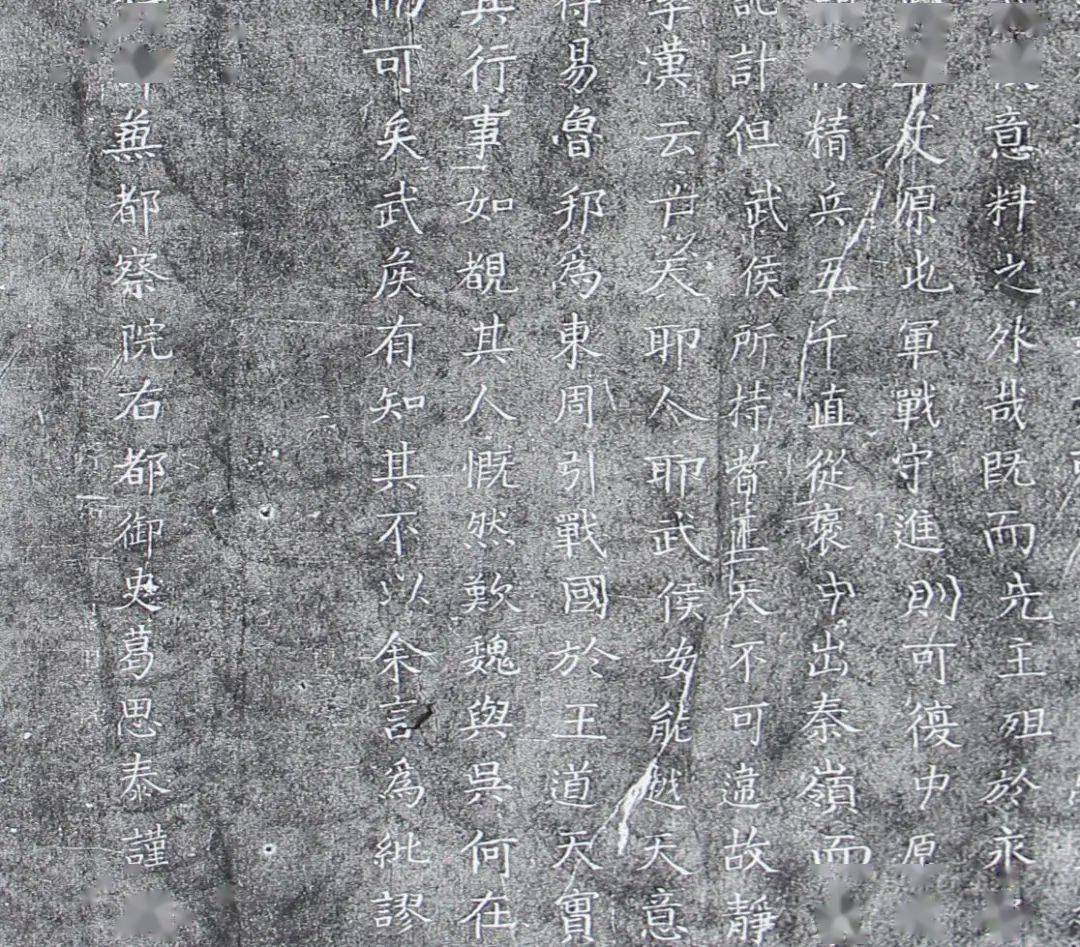 意料之外哉既而先主殂於永
伏原此軍戰守進則可復中原
精兵五千直從褒中出秦嶺而
計但武侯所持者正天不可違故靜
漢云天耶人耶武侯安能越天意
易魯邦為東周引戰國於王道天實
其行事如覩其人慨然歎魏與吳何在
而可矣武侯有知其不以余言為紕謬
兼都察院右都御史葛思泰謹